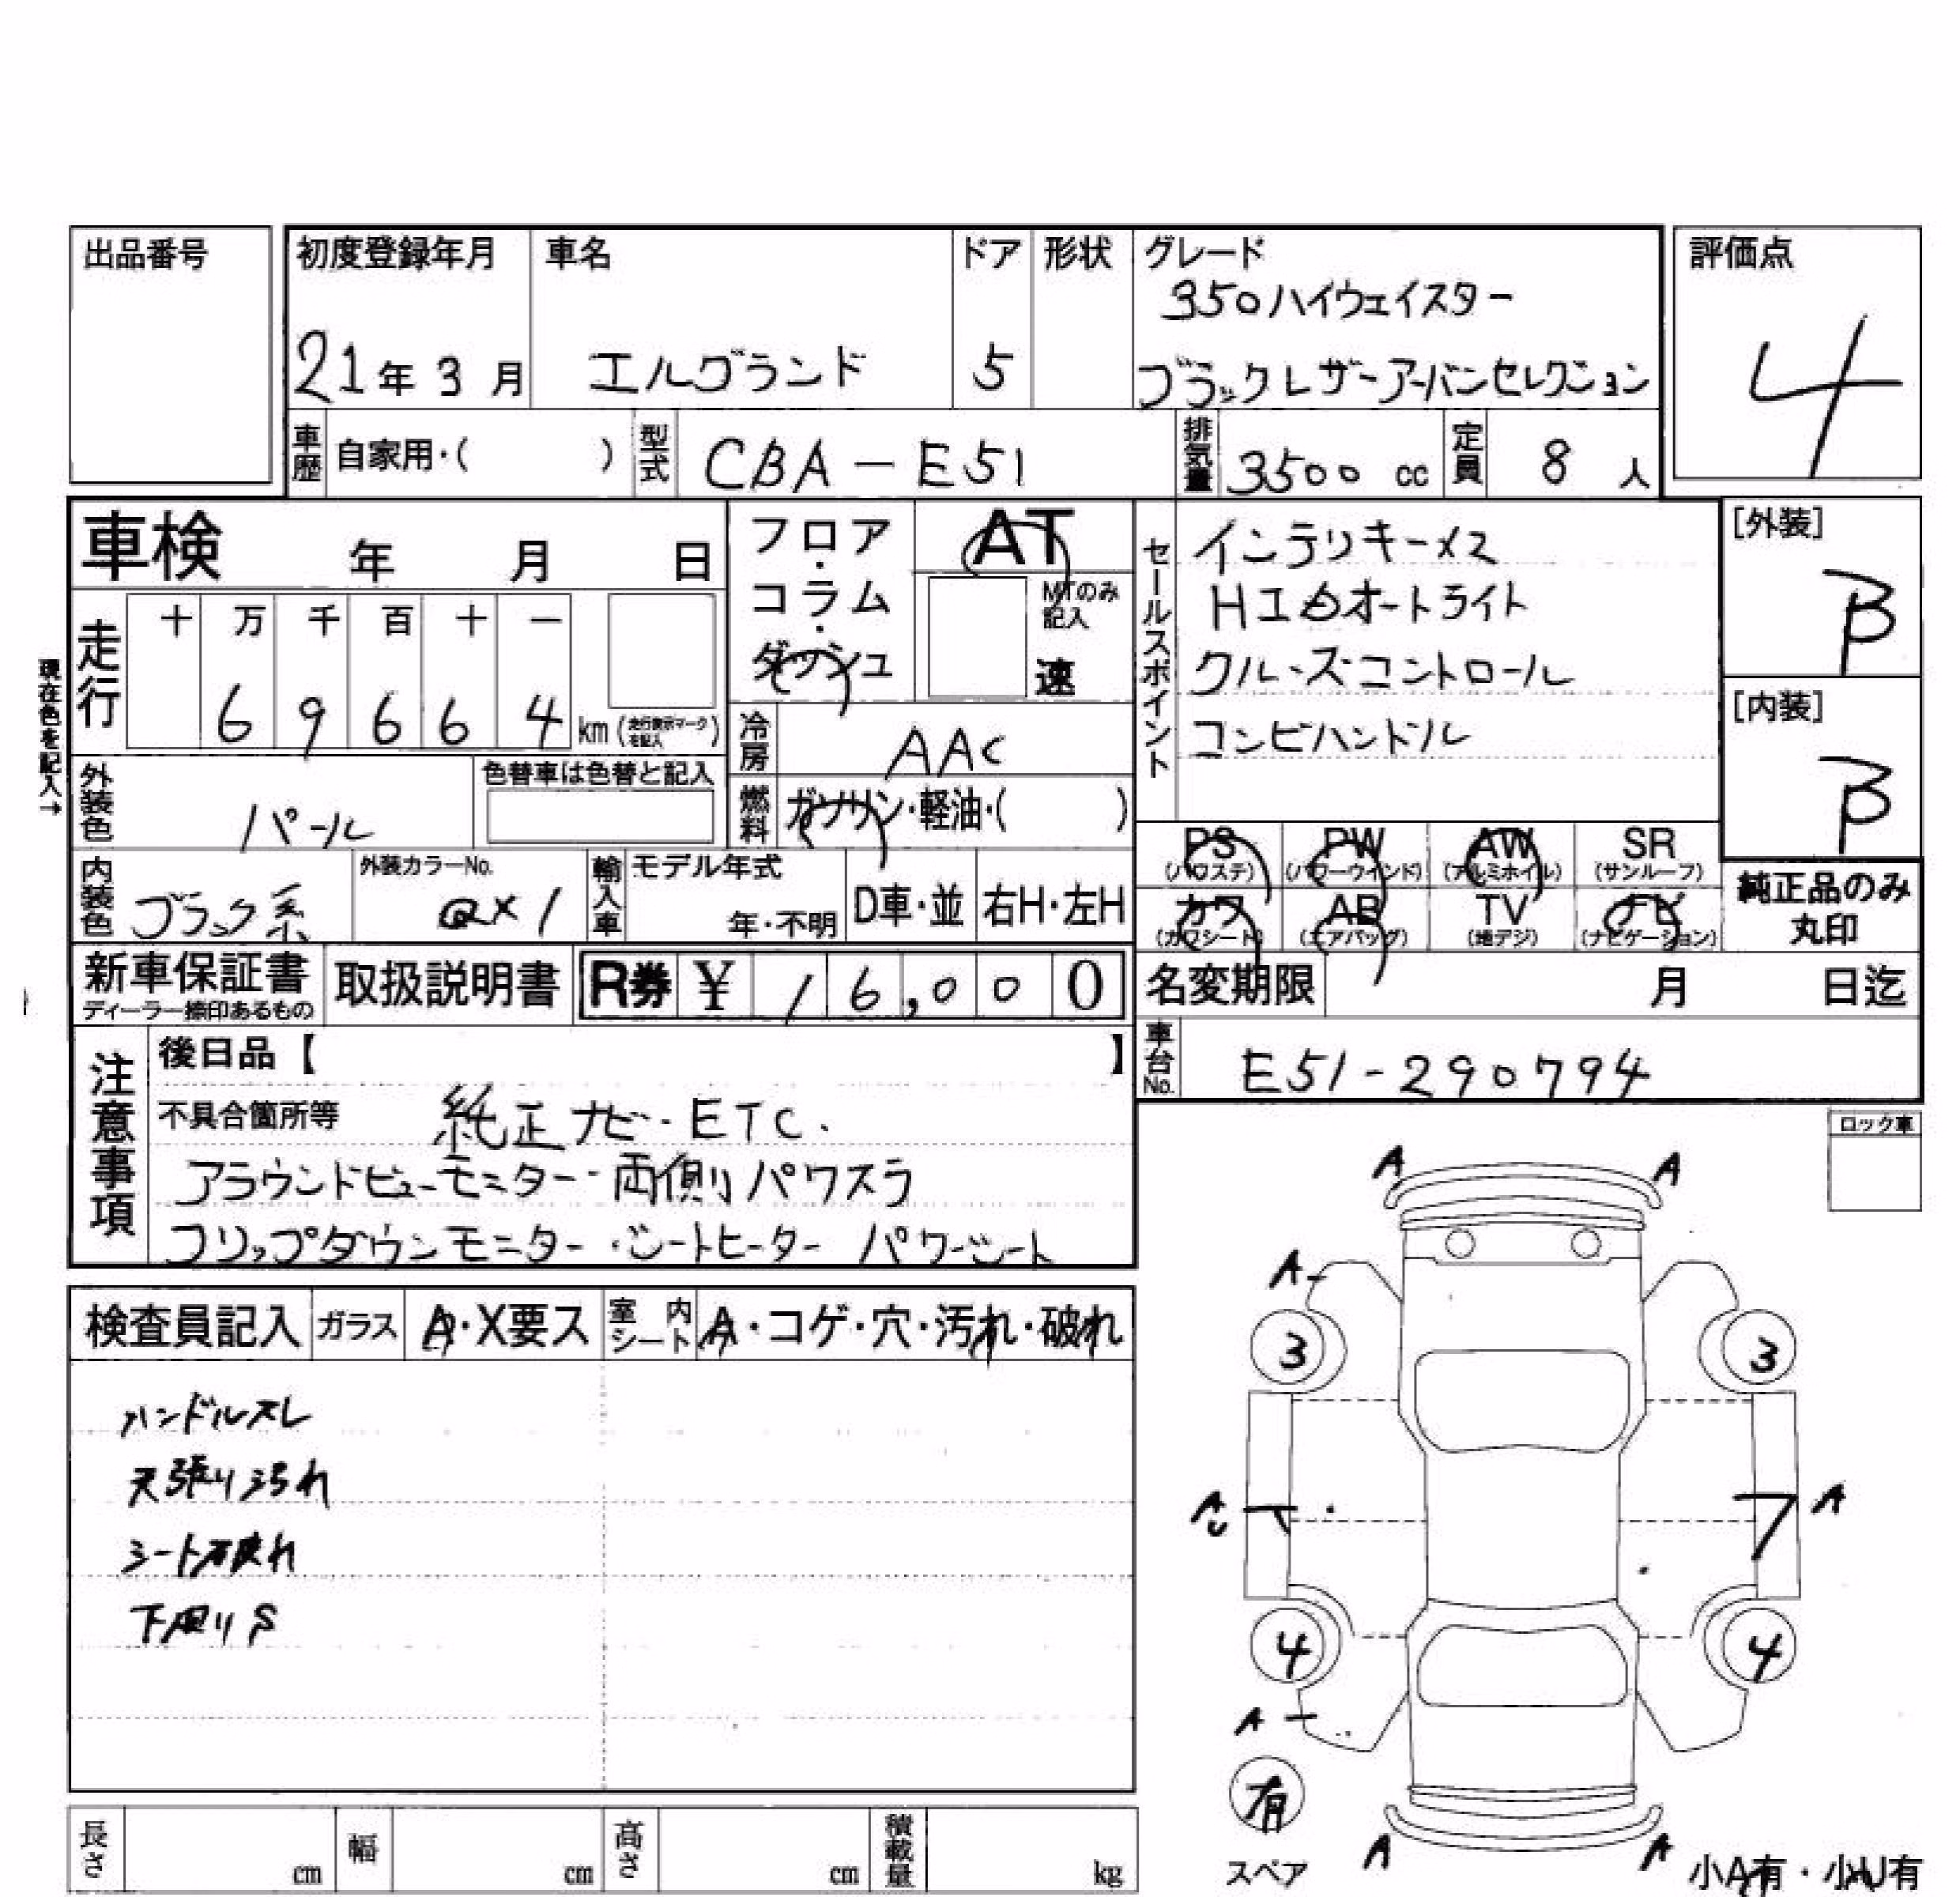 出品番号
初度登録年月 車名 ドア 形状 グレード 評価点
350ハイウェイスター
21年 3月 エルグランド 5 ブラックレザーアーバンセレクション
4
車歴 自家用・( ) 型式 CBA-E51 排気量 3500 cc 定員 8 人
車検 年 月 日
フロア・コラム・ダッシュ
AT
MTのみ記入
速
セールスポイント
インテリキーメス
HIDオートライト
クルーズコントロール
コンビハンドル
[外装]
B
[内装]
B
現在色を記入→
走行 十 万 千 百 十 一
6 9 6 6 4 km (走行表示マークを記入)
冷房 AAC
外装色 パール 色替車は色替と記入
燃料 ガソリン・軽油・( )
PS PW AW SR
(パワステ) (パワーウインド) (アルミホイル) (サンルーフ)
カワ AB TV ナビ
(カワシート) (エアバッグ) (地デジ) (ナビゲーション)
純正品のみ
丸印
内装色 ブラック系 外装カラーNo. QX1 輸入車 モデル年式 年・不明 D車・並 右H・左H
新車保証書 取扱説明書 R券 ¥ 16,000
ディーラー捺印あるもの
名変期限 月 日迄
車台No. E51-290794
注意事項
後日品【 】
不具合箇所等 純正ナビ・ETC.
アラウンドビューモニター・両側パワスラ
フリップダウンモニター・シートヒーター パワーシート
ロック車
検査員記入 ガラス A・X要ス 室内シート A・コゲ・穴・汚れ・破れ
ハンドルスレ
天張り汚れ
シート破れ
下周りS
A A
A
3 3
A U A
4 4
A
有
スペア
A A
小A有・小U有
長さ cm 幅 cm 高さ cm 積載量 kg